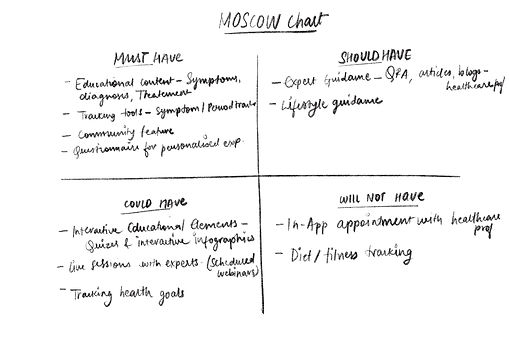 MOSCOW Chart
MUST HAVE
- Educational content - Symptoms,
diagnosis, Treatement
- Tracking tools - Symptom/Period tracker
- Community feature
- Questionnaire for personalised exp.
SHOULD HAVE
- Expert Guidame - Q&A, articles, blogs -
healthcare prof
- Lifestyle guidance
COULD HAVE
- Interactive Educational Elements -
Quizes & interactive infographics
- live sessions with experts. (scheduled
webinars)
- Tracking health goals
WILL NOT HAVE
- In-App appointment with healthcare
prof
- Diet/fitness tracking